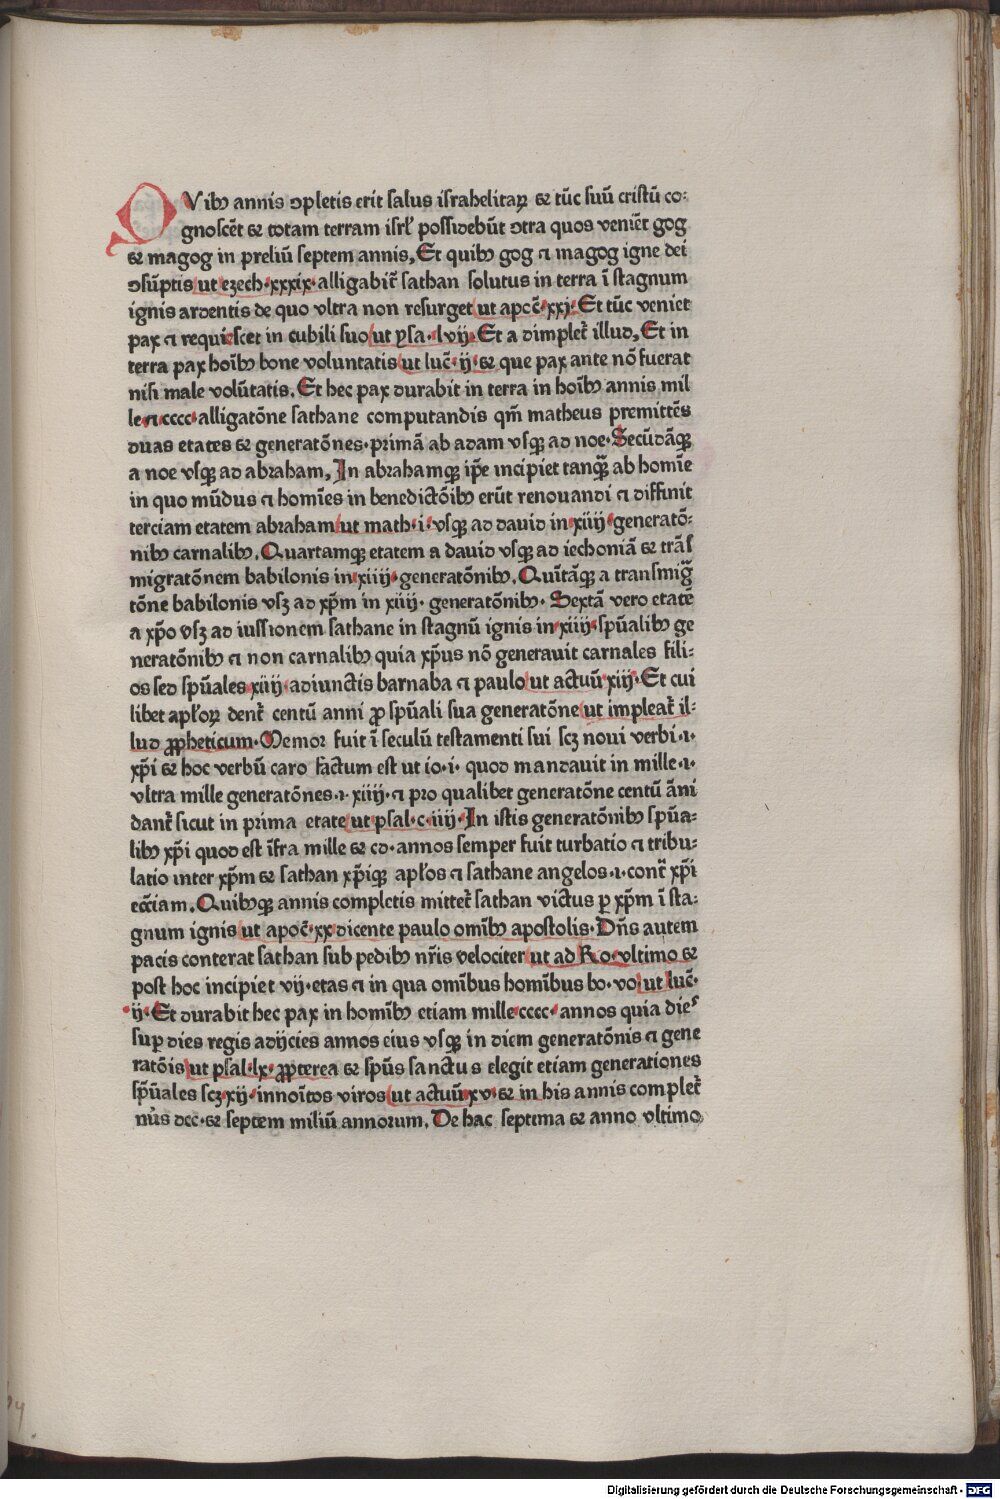 QVibꝫ annis ↄpletis erit salus israhelitaꝝ ⁊ tūc suū cristū co⸗
gnoscēt ⁊ totam terram isrł possidebūt ↄtra quos veniēt gog
⁊ magog in preliū septem annis, Et quibꝫ gog ⁊ magog igne dei
ↄsūptis ut ezech·xxxix·alligabit̄ sathan solutus in terra ī stagnum
ignis ardentis de quo vltra non resurget ut apoc̄·xxj· Et tūc veniet
pax ⁊ requiescet in cubili suo ut ysa·lvij· Et a dimplet̄ illud, Et in
terra pax hoībꝫ bone voluntatis ut luc̄·ij·⁊ que pax ante nō fuerat
nisi male volūtatis. Et hec pax durabit in terra in hoībꝫ annis mil
le·⁊·cccc·alligatōne sathane computandis qm̄ matheus premittēs
duas etates ⁊ generatōnes·primā ab adam vsqꝫ ad noe·Secūdāqꝫ
a noe vsqꝫ ad abraham, In abrahamqꝫ ip̄e incipiet tanqꝫ̄ ab homīe
in quo mūdus ⁊ homīes in benedictōibꝫ erūt renouandi ⁊ diffinit
terciam etatem abraham ut math·i· vsqꝫ ad dauid in·xiiij·generatō⸗
nibꝫ carnalibꝫ. Quartamqꝫ etatem a dauid vsqꝫ ad iechoniā ⁊ trās
migratōnem babilonis in·xiiij·generatōnibꝫ. Quītāqꝫ a transmigr̄
tōne babilonis vsꝫ ad xp̄m in xiiij· generatōnibꝫ· Sextā vero etatē
a xp̄o vsꝫ ad iussionem sathane in stagnū ignis in·xiiij·sp̄ualibꝫ ge
neratōnibꝫ ⁊ non carnalibꝫ quia xp̄us nō generauit carnales fili⸗
os sed sp̄uales·xiiij·adiunctis barnaba ⁊ paulo ut actuū·xiij· Et cui
libet apłoꝝ dent̄ centū anni ꝓ sp̄uali sua generatōne ut impleat̄ il⸗
lud ꝓpheticum·Memor fuit ī seculū testamenti sui scꝫ noui verbi·i·
xp̄i ⁊ hoc verbū caro factum est ut io·i· quod mandauit in mille·i·
vltra mille generatōnes·i·xiiij·⁊ pro qualibet generatōne centū āni
dant̄ sicut in prima etate ut psal·c·iiij· In istis generatōnibꝫ sp̄ua⸗
libꝫ xp̄i quod est īfra mille ⁊ cd·annos semper fuit turbatio ⁊ tribu⸗
latio inter xp̄m ⁊ sathan xp̄iqꝫ apłos ⁊ sathane angelos·i·cont̄ xp̄i
ecc̄iam. Quibꝫqꝫ annis completis mittet̄ sathan victus ꝑ xp̄m ī sta⸗
gnum ignis ut apoc̄·xx dicente paulo omībꝫ apostolis·Dn̄s autem
pacis conterat sathan sub pedibꝫ nr̄is velociter ut ad Ro·vltimo ⁊
post hoc incipiet vij·etas ⁊ in qua omībus homībus bo·vo· ut luc̄·
ij· Et durabit hec pax in homībꝫ etiam mille·cccc·annos quia dies
suꝑ dies regis adijcies annos eius vsqꝫ in diem generatōnis ⁊ gene
ratōis ut psal·lx·ꝓpterea ⁊ sp̄us sanctus elegit etiam generationes
sp̄uales scꝫ·xij·innoītos viros ut actuū·xv·⁊ in his annis complet̄
nūs dcc·⁊ septem miliū annorum. De hac septima ⁊ anno vltimo
Digitalisierung gefördert durch die Deutsche Forschungsgemeinschaft - DFG